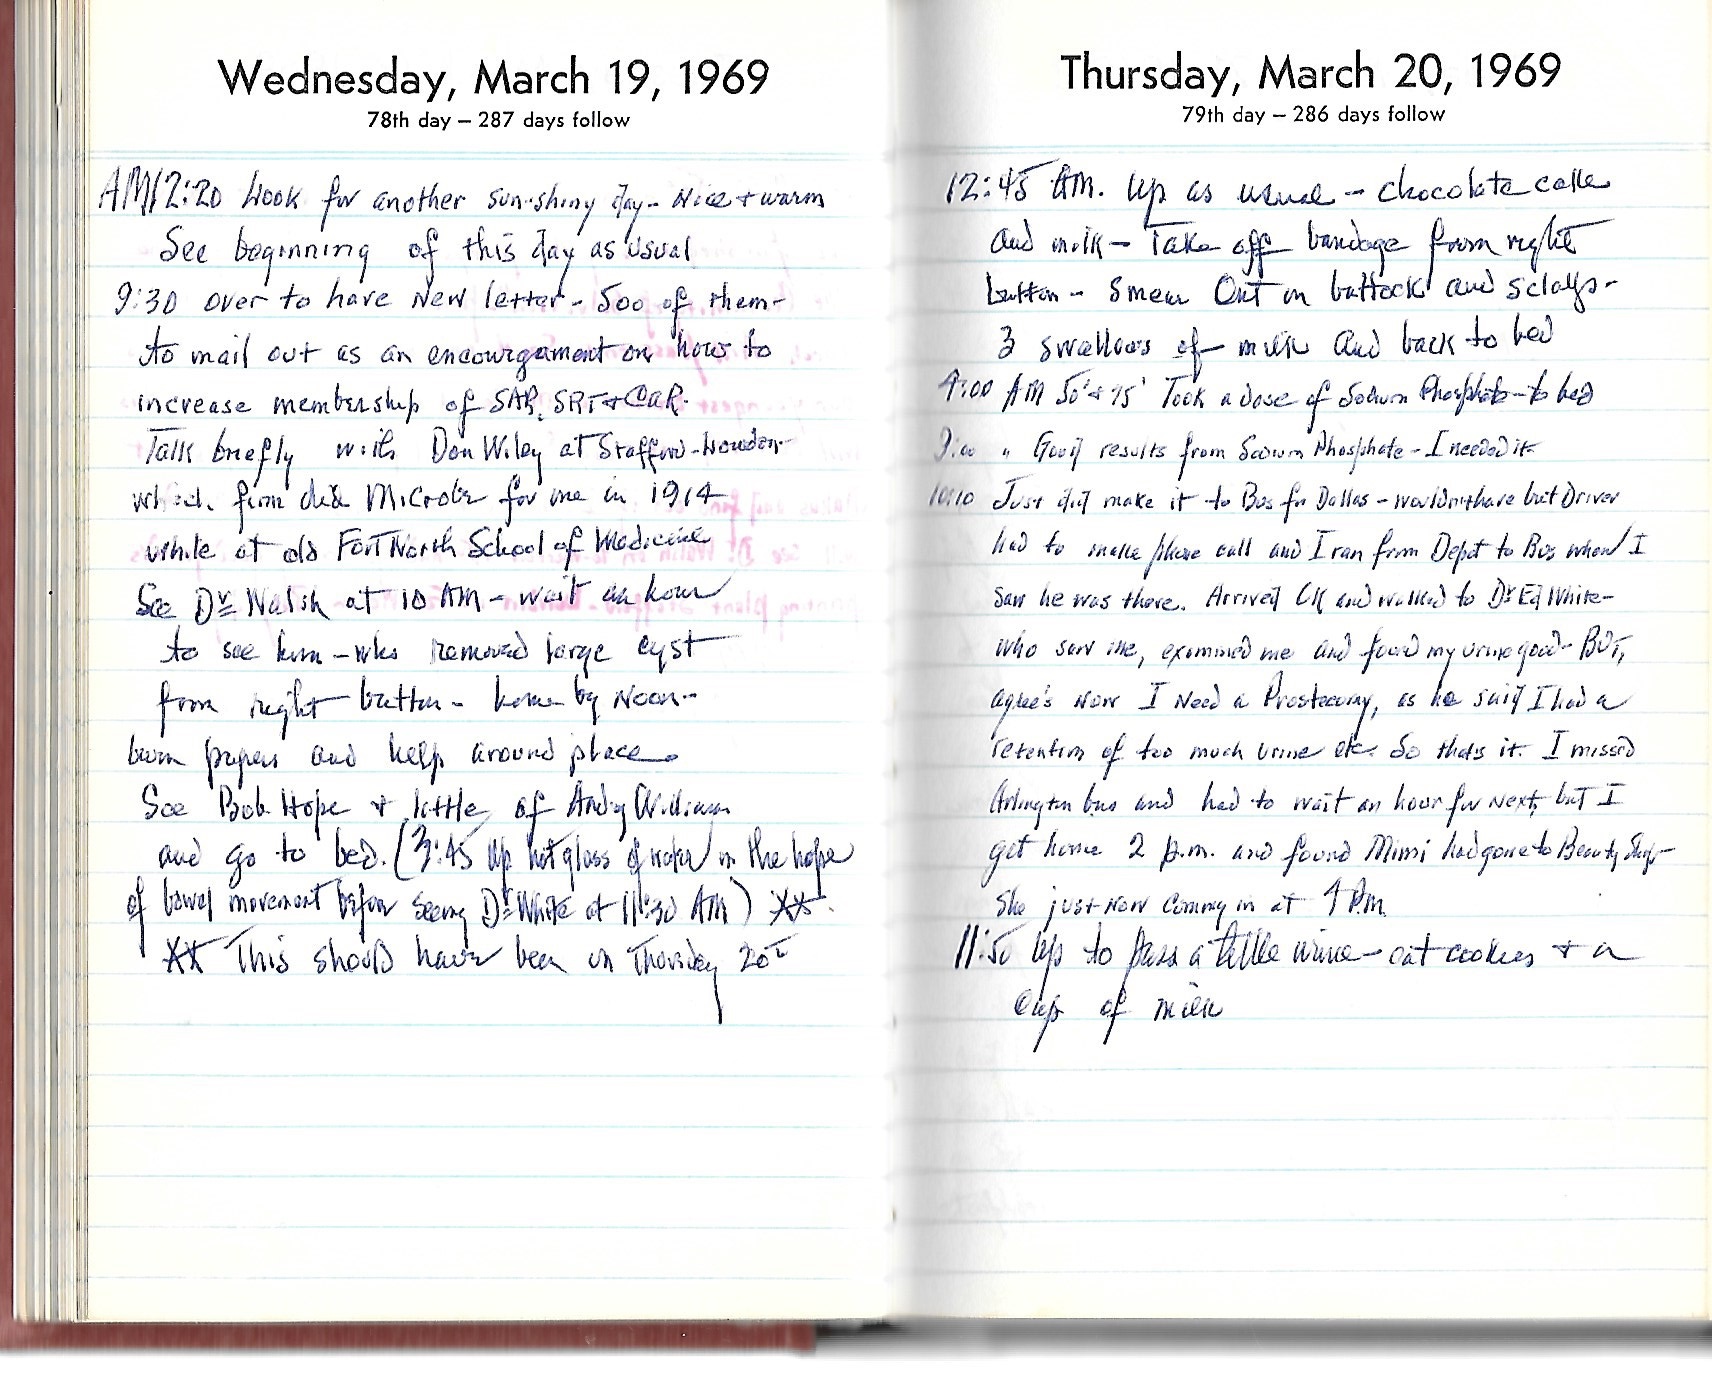 Wednesday, March 19, 1969
78th day – 287 days follow
AM 12:20 Look for another sun-shiny day - Nice + warm
See beginning of this day as usual
9:30 over to have New letter - 500 of them -
to mail out as an encourgament on how to
increase membership of SAR, SRT + CAR.
Talk briefly with Don Wiley at Stafford-Lowdon -
which firm did Microbe for me in 1914
while at old Fort Worth School of Medicine
See Dr Walsh at 10 AM - wait an hour
to see him - who removed large cyst
from right button - home by Noon -
burn papers and help around place.
See Bob Hope + little of Andy Williams
and go to bed. (3:45 Up hot glass of water in the hope
of bowel movement before seeing Dr White at 11:30 AM) XX.
XX This should have been on Thursday 20th
Thursday, March 20, 1969
79th day – 286 days follow
12:45 AM. Up as usual - chocolate cake
and milk - Take off bandage from right
button - smear Ont on buttock and
3 swallows of milk and back to bed
4:00 AM 50' + 75' Took a dose of Sodium Phosphate - to bed
9:00 " Good results from Sodium Phosphate - I needed it -
10:10 Just did make it to Bus for Dallas - wouldn't have but Driver
had to make phone call and I ran from Depot to Bus when I
saw he was there. Arrived OK and walked to Dr Ed White -
who saw me, examined me and found my urine good - BUT,
agree's Now I Need a Prostecomy, as he said I had a
retention of too much urine etc. So thats it. I missed
Arlington bus and had to wait an hour for Next, but I
get home 2 p.m. and found Mimi had gone to Beauty Shop -
She just now comming in at 4 P.M.
11:50 Up to pass a little urine - eat cookies + a
cup of milk